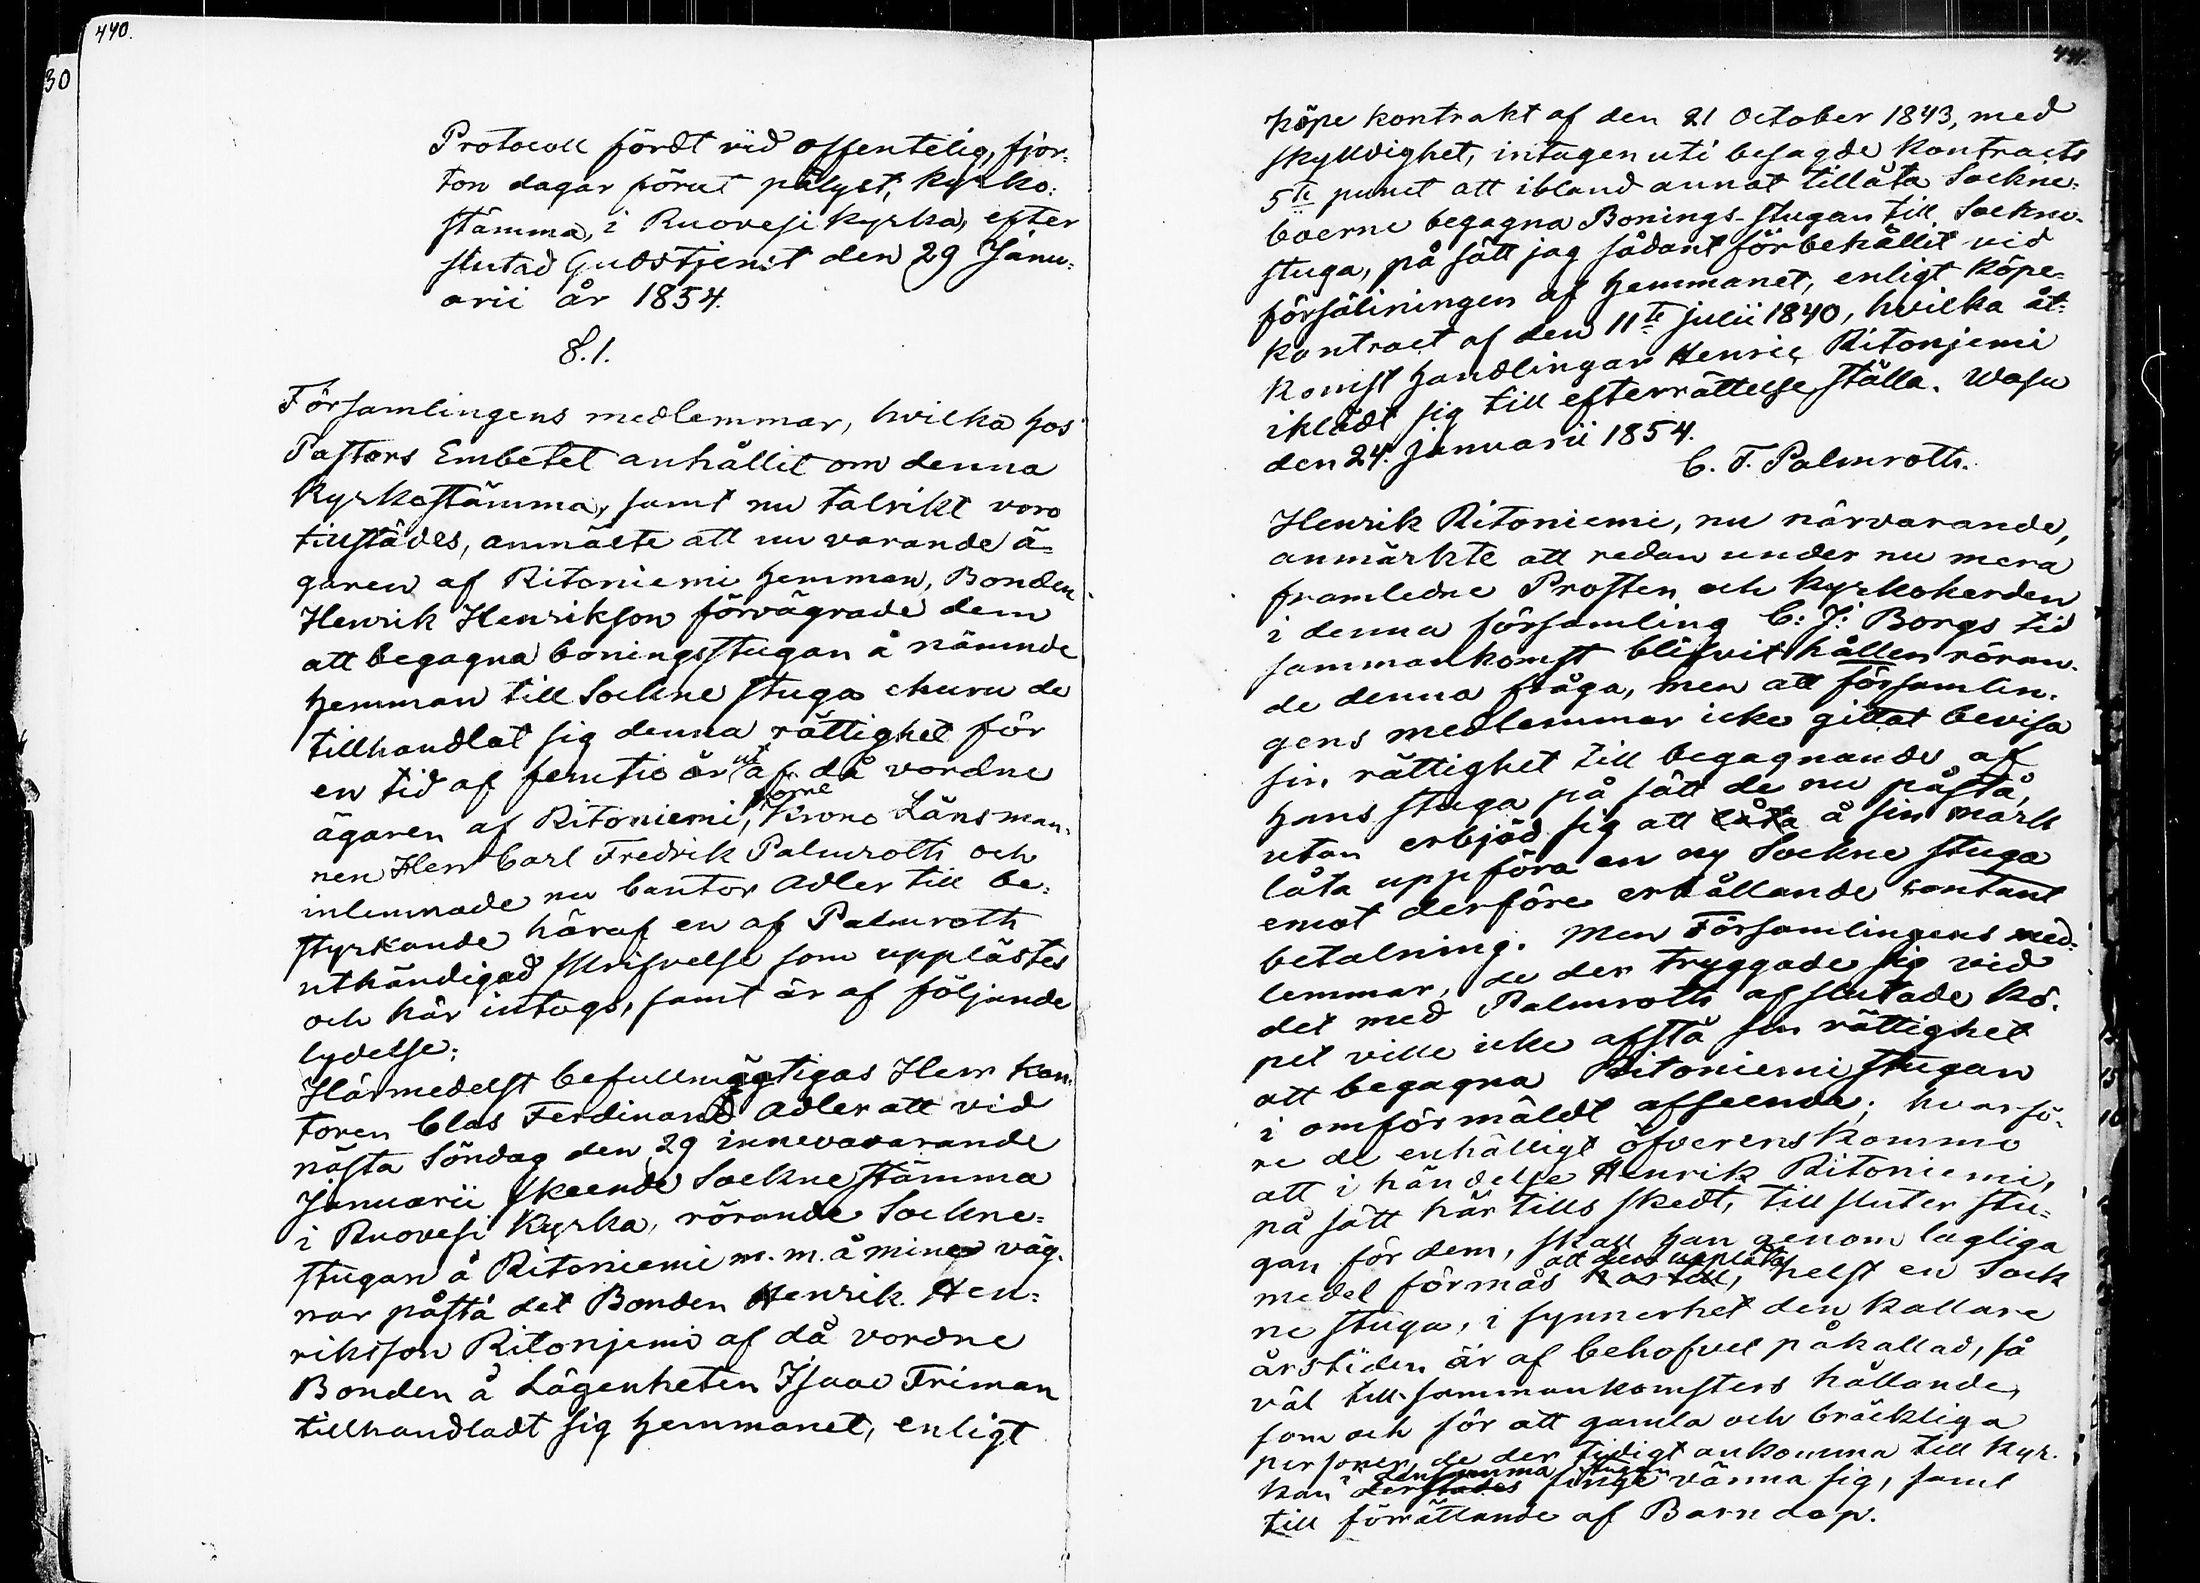 440.
30
Protocoll fördt vid offentelig, fjor-
ton dagar förut pålyst, kyrko-
stämma, i Ruovesi kyrka, efter
slutad Gudstjenst den 29 Janu-
arii år 1854.
§. 1.
Församlingens medlemmar, hvilka hos
Pastors Embetet anhållit om denna
kyrkostämma, samt nu talrikt voro
tillstädes, anmälte att nu varande ä-
garen af Ritoniemi hemman, Bonden
Henrik Henrikson förvägrade dem
att begagna boningsstugan å nämnde
hemman till Sockne stuga ehuru de
tillhandlat sig denna rättighet för
en tid af femtio år ut af då vordne
ägaren af Ritoniemi, förre Krono Länsman-
nen Herr Carl Fredrik Palmroth och
inlemnade nu Cantor Adler till be-
styrkande häraf en af Palmroth
uthändigad skrifvelse som upplästes
och här intogs, samt är af följande
lydelse:
Härmedelst befullmägtigas Herr Kan-
toren Clas Ferdinand Adler att vid
nästa Söndag den 29 innevavarande
Januarii skeende Sockne stämma
i Ruovesi Kyrka, rörande Sockne-
stugan å Ritoniemi m. m. å mina väg-
nar påstå det Bonden Henrik Hen-
riksson Ritonjemi af då vordne
Bonden å Lägenheten Isaac Friman
tillhandladt sig hemmanet, enligt
441.
köpe kontrakt af den 21 October 1843, med
skylldighet, intagen uti besagde kontracts
5te punct att ibland annat tillåta Sockne-
boerne begagna Bonings-stugan till Sockne-
stuga, på sätt jag sådant förbehållit vid
försäliningen af hemmanet, enligt köpe-
kontract af den 11te julii 1840, hvilka åt-
komst handlingar Henric Ritonjemi
iklädt sig till efterrättelse ställa. Wasa
den 24. Januarii 1854.
C. F. Palmroth.
Henrik Ritoniemi, nu närvarande,
anmärkte att redan under nu mera
framledne Prosten och Kyrkoherden
i denna församling C: J: Borgs tid
sammankomst blifvit hållen röran-
de denna fråga, men att församlin-
gens medlemmar icke gittat bevisa
sin rättighet till begagnande af
hans stuga på sätt de nu påstå,
utan erbjöd sig att låta å sin mark
låta uppföra en ny Sockne stuga
emot derföre erhållande contant
betalning. Men Församlingens med-
lemmar, de der tryggade sig vid
det med Palmroth afslutade kö-
pet ville icke afstå sin rättighet
att begagna Ritoniemi stugan
i omförmäldt afseende; hvarfö-
re de enhälligt öfverenskommo
att i händelse Henrik Ritoniemi,
på sätt här tills skedt, till sluter stu-
gan för dem, skall han genom lagliga
medel förmås att dem upplåta, helst en Sock
ne stuga, i synnerhet den kallare
årstiden är af behofvet påkallad, så
väl till sammankomsters hållande,
som och för att gamla och bräckliga
personer, de der tidigt ankomma till kyr-
kan i densamma stugan finge värma sig, samt
till förrättande af Barn dop.